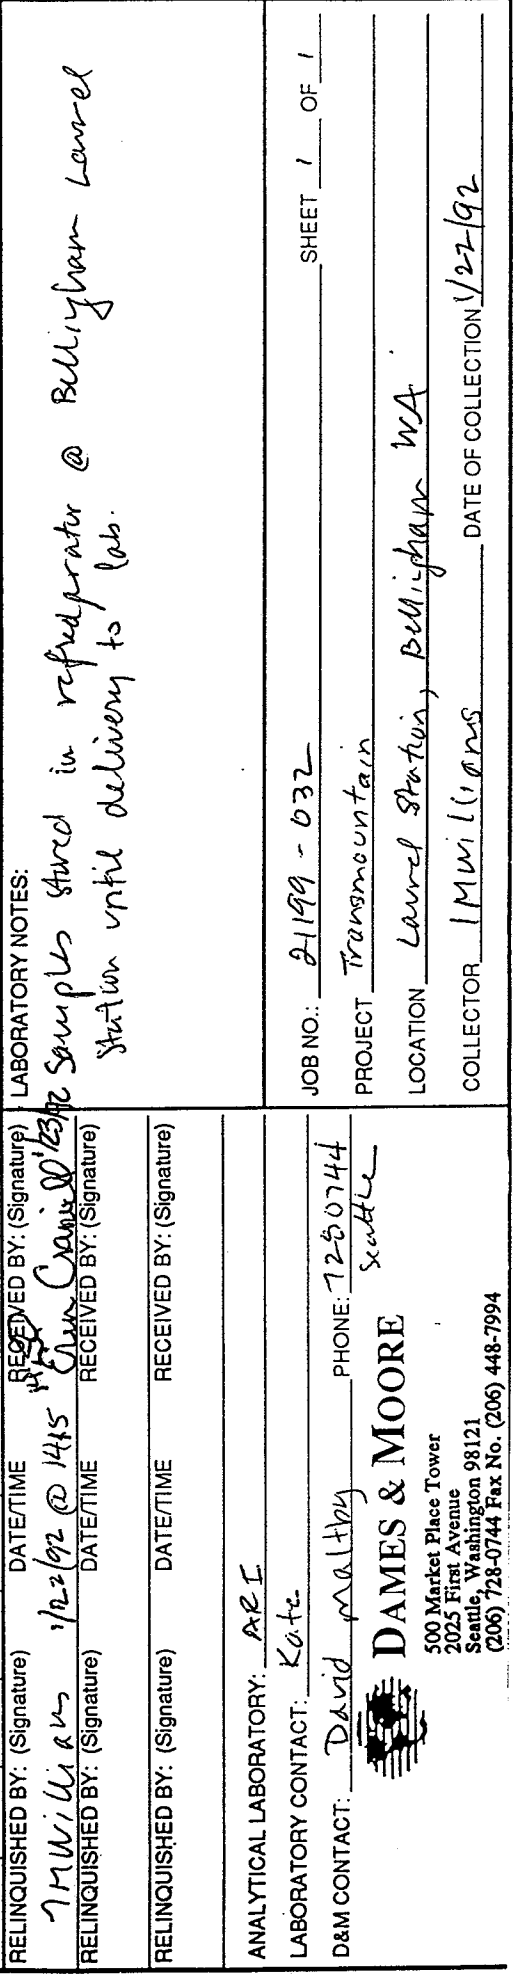 RELINQUISHED BY: (Signature) DATE/TIME RECEIVED BY: (Signature)
TMWilliams 1/22/92 @ 1415 Erin 1/23/92
RELINQUISHED BY: (Signature) DATE/TIME RECEIVED BY: (Signature)
RELINQUISHED BY: (Signature) DATE/TIME RECEIVED BY: (Signature)
ANALYTICAL LABORATORY: ARI
LABORATORY CONTACT: Kate
D&M CONTACT: David Maltby PHONE: 7280744
Seattle
DAMES & MOORE
500 Market Place Tower
2025 First Avenue
Seattle, Washington 98121
(206) 728-0744 Fax No. (206) 448-7994
LABORATORY NOTES:
Samples stored in refredgerator @ Bellingham Laurel
Station until delivery to lab.
JOB NO.: 21199-032 SHEET 1 OF 1
PROJECT Transmountain
LOCATION Laurel Station, Bellingham WA
COLLECTOR TMWilliams DATE OF COLLECTION 1/22/92